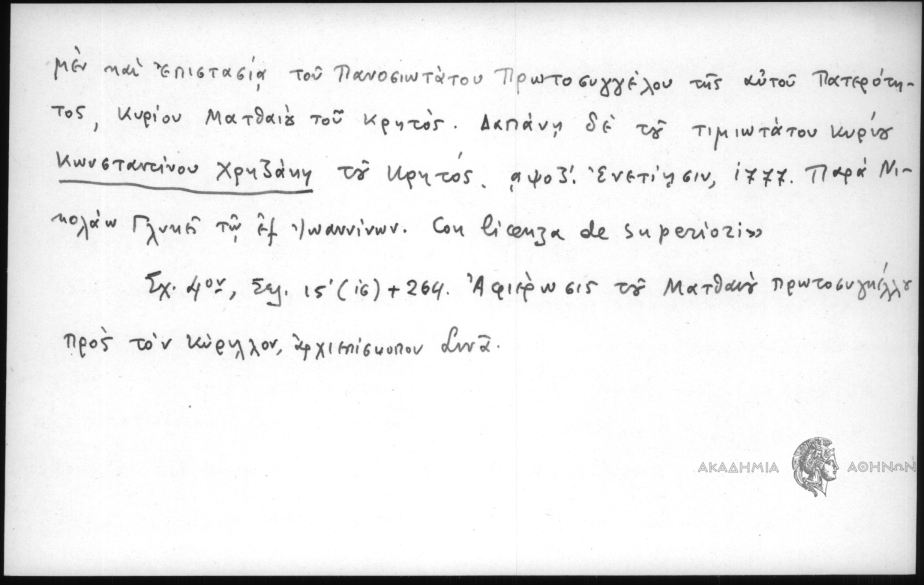 μὲν καὶ ἐπιστασίᾳ τοῦ Πανοσιωτάτου Πρωτοσυγγέλου τῆς αὐτοῦ Πατερότη-
τος, Κυρίου Ματθαίου τοῦ Κρητὸς. Δαπάνῃ δὲ τοῦ τιμιωτάτου κυρίου
Κωνσταντίνου Χρηζάκη τοῦ Κρητός. Ἐνετίησιν, 1777. Παρὰ Νι-
κολάῳ Γλυκεῖ τῷ ἐξ Ἰωαννίνων. Con licenza de Superiori»
Σχ. 4ον, Σελ. ις' (16) + 264. Ἀφιέρωσις τοῦ Ματθαίου πρωτοσυγκέλλου
πρὸς τὸν Κύριλλον, ἀρχιεπίσκοπον Σινᾶ.
ΑΚΑΔΗΜΙΑ ΑΘΗΝΩΝ